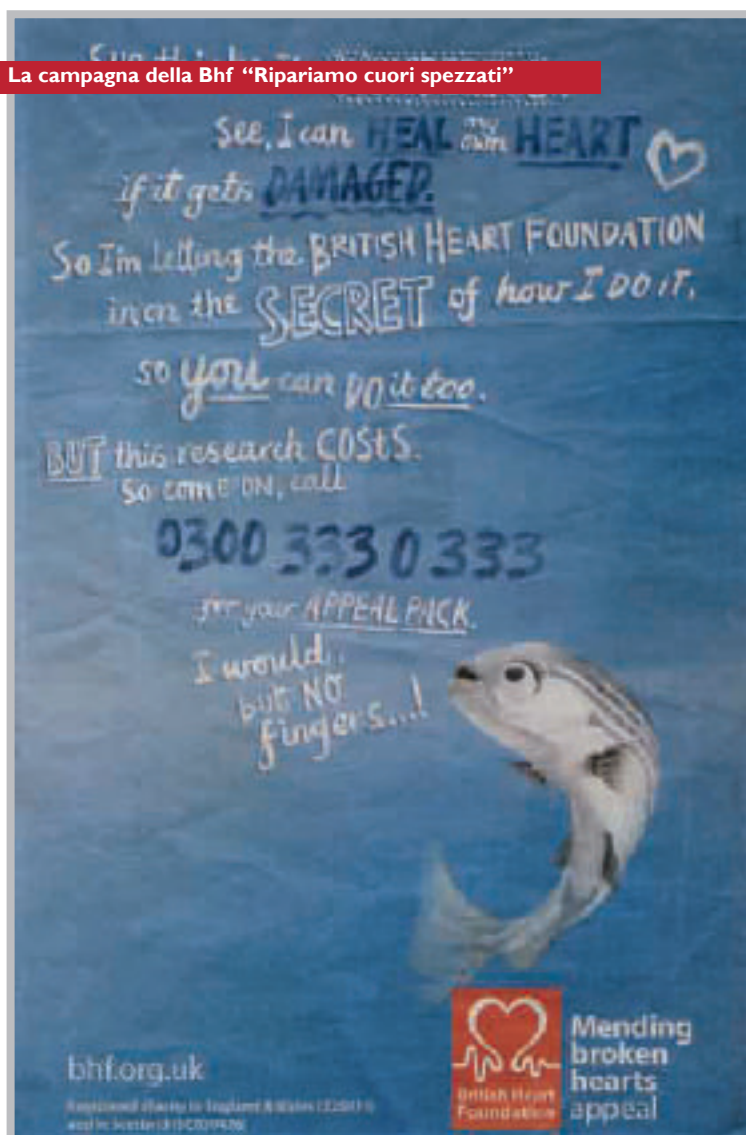 La campagna della Bhf “Ripariamo cuori spezzati”
See, I can HEAL my own HEART
if it gets DAMAGED.
So I'm letting the BRITISH HEART FOUNDATION
in on the SECRET of how I DO IT,
so you can DO it too.
BUT this research COSTS.
So come ON, call
0300 333 0 333
for your APPEAL PACK.
I would..
but NO
fingers...!
bhf.org.uk
Registered charity in England & Wales
and in Scotland
British Heart
Foundation
Mending
broken
hearts
appeal